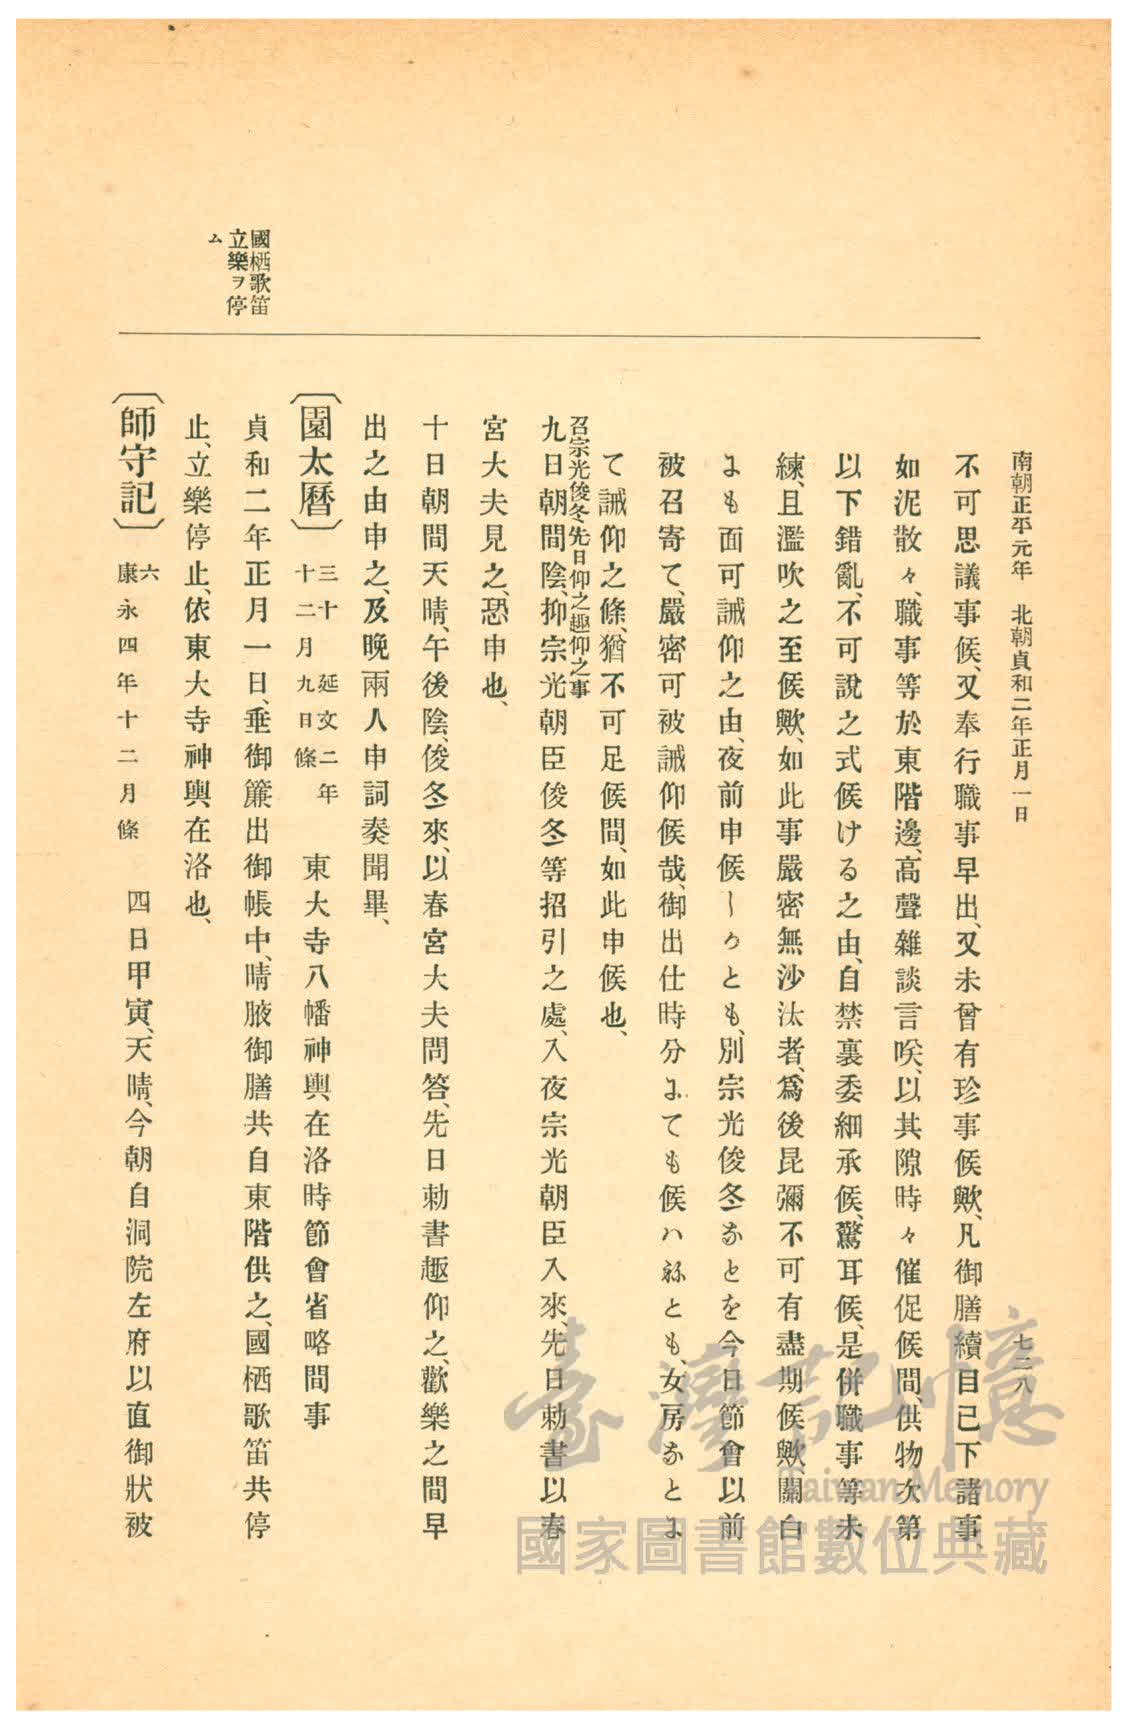 南朝正平元年　北朝貞和二年正月一日
七二八
不可思議事候、又奉行職事早出、又未曾有珍事候歟、凡御膳續目已下諸事、
如泥散々、職事等於東階邊、高聲雜談言咲、以其隙時々催促候間、供物次第
以下錯亂、不可說之式候ける之由、自禁裏委細承候、驚耳候、是併職事等未
練、且濫吹之至候歟、如此事嚴密無沙汰者、爲後昆彌不可有盡期候歟、關白
にも面可誡仰之由、夜前申候しかとも、別宗光俊冬なとを今日節會以前
被召寄て、嚴密可被誡仰候哉、御出仕時分にても候ハねとも、女房なとに
て誡仰之條、猶不可足候間、如此申候也、
召宗光俊冬先日仰之趣仰之事
九日朝間陰、抑宗光朝臣俊冬等招引之處、入夜宗光朝臣入來、先日勅書以春
宮大夫見之、恐申也、
十日朝間天晴、午後陰、俊冬來、以春宮大夫問答、先日勅書趣仰之、歡樂之間早
出之由申之、及晩兩人申詞奏聞畢、
〔園太曆〕三十　延文二年十二月九日條　東大寺八幡神輿在洛時節會省略間事
國栖歌笛
立樂ヲ停
ム
貞和二年正月一日、垂御簾出御帳中、晴腋御膳共自東階供之、國栖歌笛共停
止、立樂停止、依東大寺神輿在洛也、
〔師守記〕六　康永四年十二月條　四日甲寅、天晴、今朝自洞院左府以直御狀被
臺灣記憶
Taiwan Memory
國家圖書館數位典藏